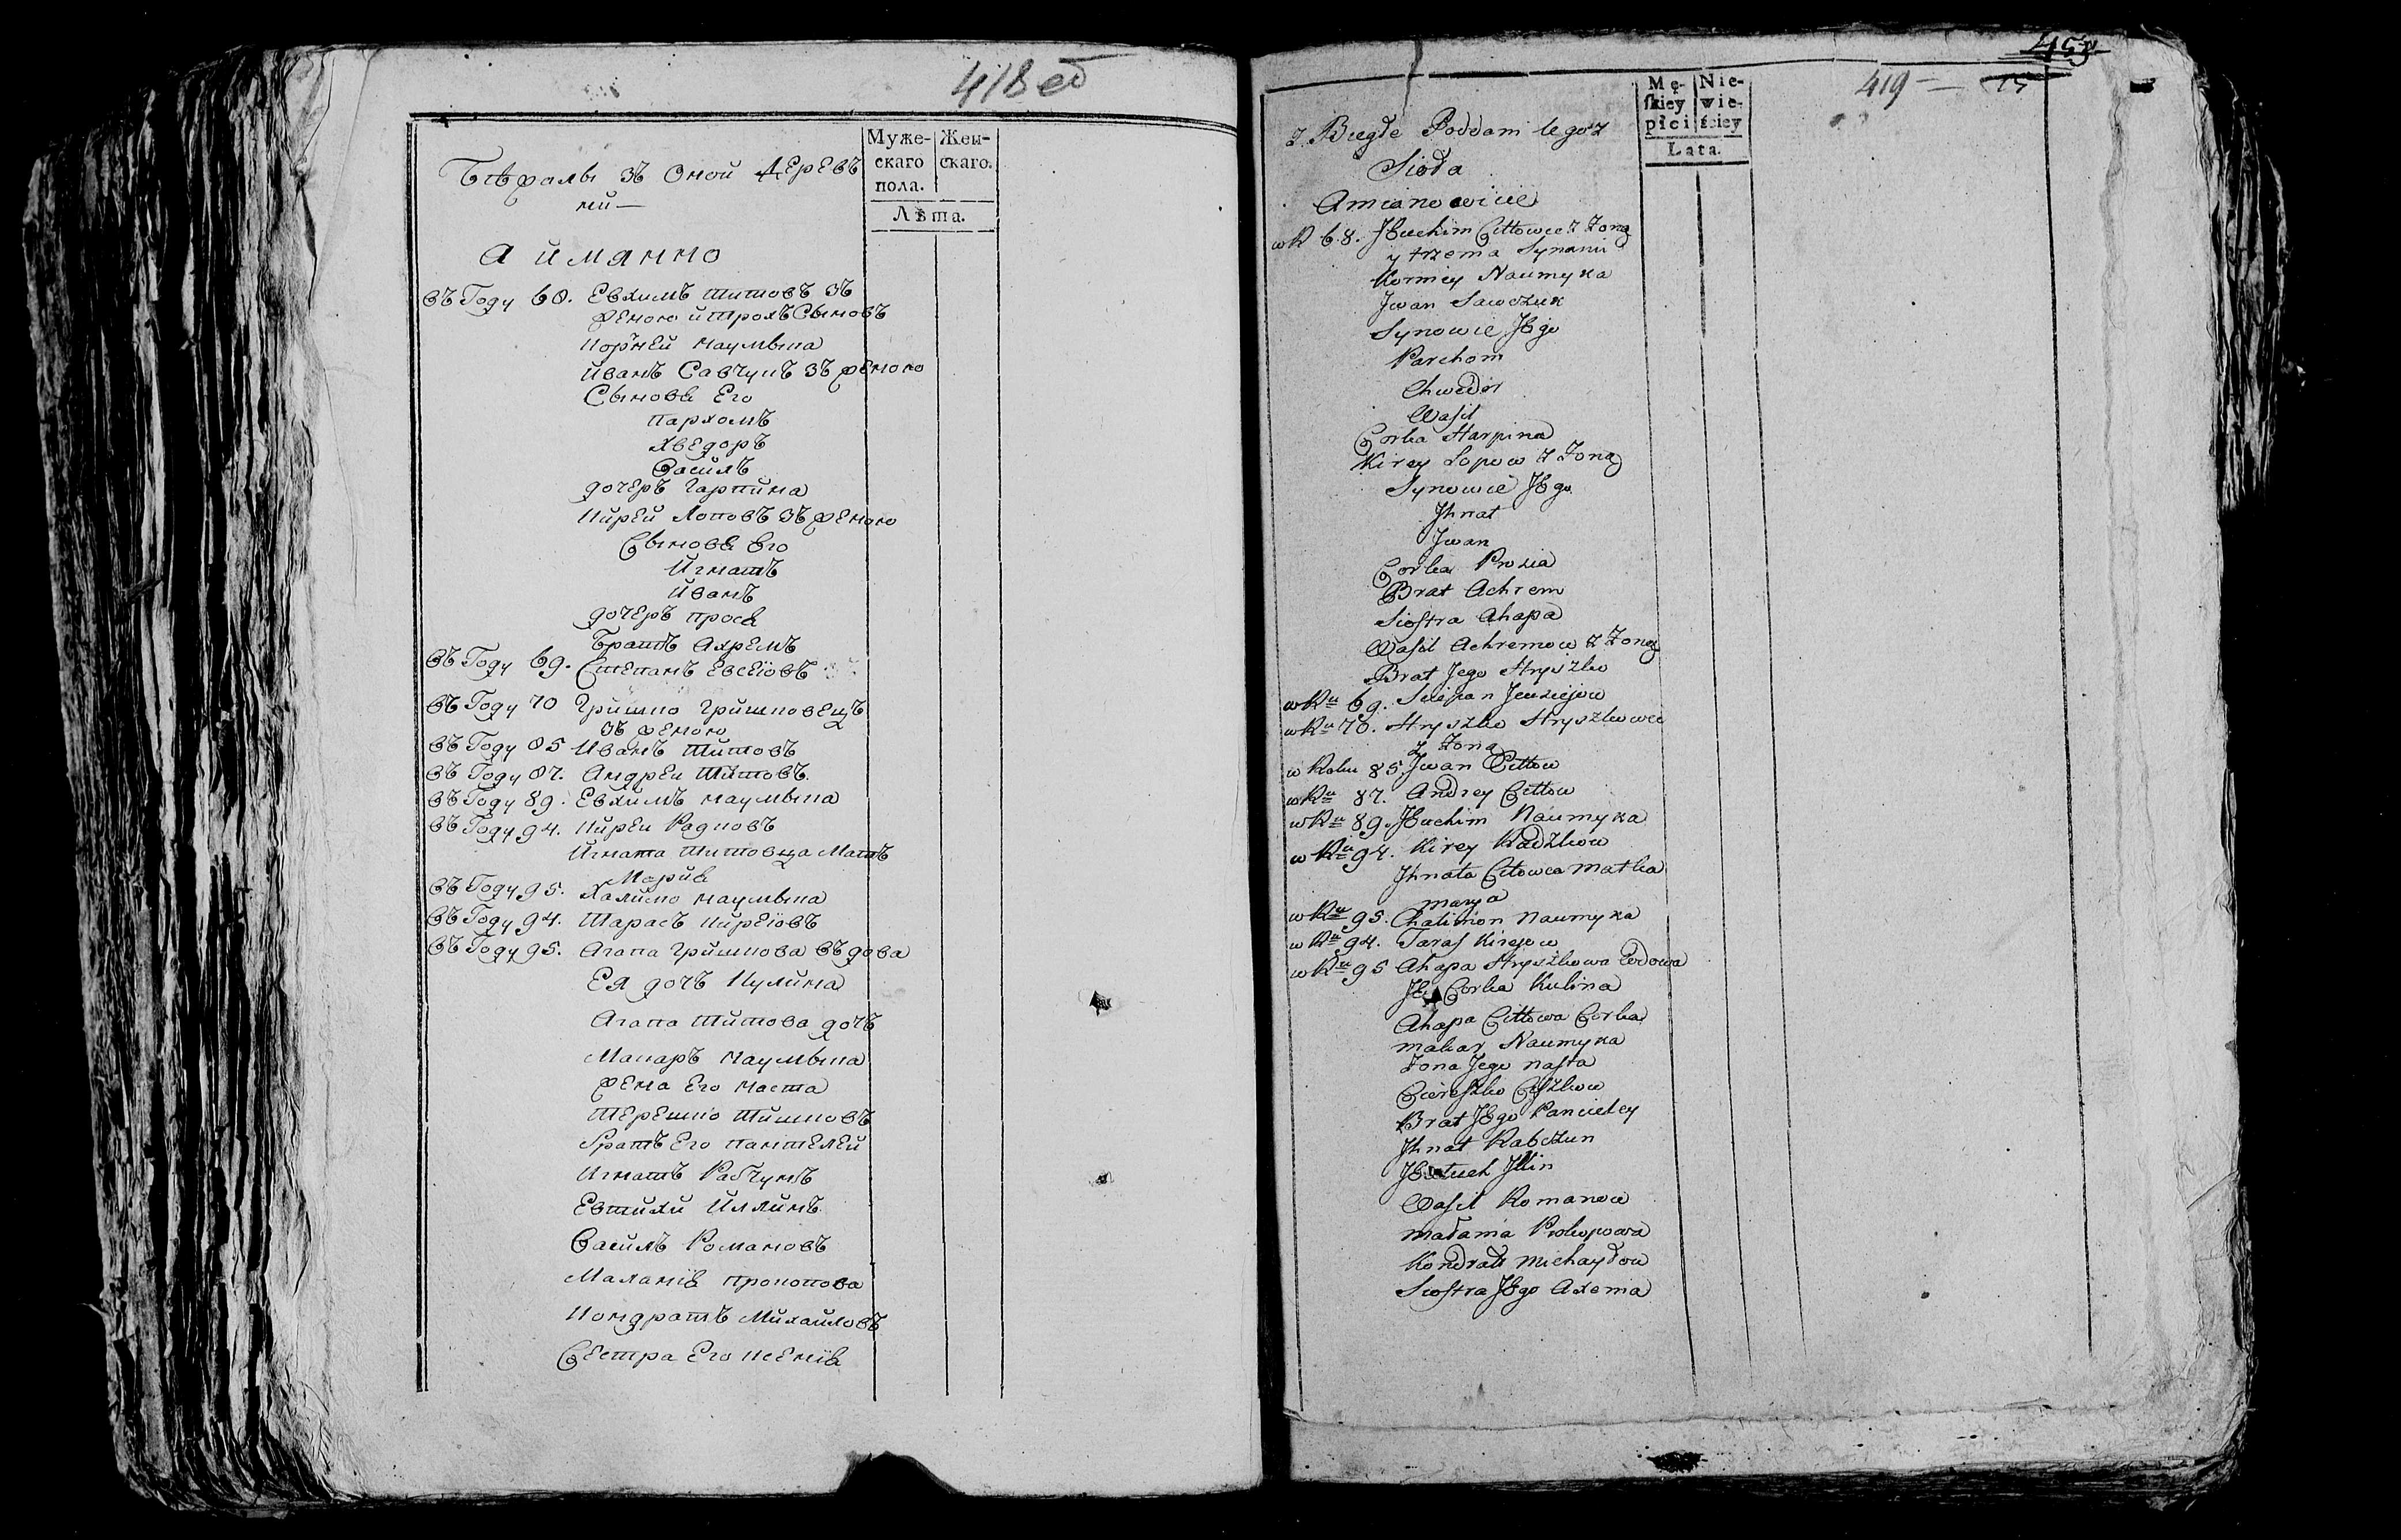 418 об
Муже- Жен-
скаго скаго.
пола.
Лѣта.
Бѣжалы зъ оной дерев
ни —
а имянно
въ Году 68. Евхимъ Титовъ зъ
женою и трохъ Сыновъ
Корней Наумыка
Иванъ Савчукъ зъ женою
Сыновѣ Его
Пархомъ
Хведоръ
Василъ
дочеръ Гарпина
Кирей Лоповъ зъ женою
Сыновѣ Его
Игнатъ
Иванъ
дочеръ Просѣ
Братъ Ахремъ
въ Году 69. Степанъ Евсеіовъ
въ Году 70 Гришко Гришковецъ
зъ женою
въ Году 85 Иванъ Титовъ
въ Году 87. Андрей Титовъ.
въ Году 89. Евхимъ Наумыка
въ Году 94. Кирей Радковъ
Игната Титовца Матъ
Марыѣ
въ Году 95. Халимо Наумыка
въ Году 94. Тарасъ Киреіовъ
въ Году 95. Агапа Гришкова въдова
Ея дочъ Кулина
Агапа Титова дочъ
Макаръ Наумыка
Жена Его Наста
Терешко Тишковъ
Братъ Его Пантелей
Игнатъ Рабчунъ
Евтихи Иллинъ
Василъ Романовъ
Маланіѣ Прокопова
Кондратъ Михаиловъ
Сестра Его Ксеніѣ
419 —
Mę- Nie-
skiey wie-
płci ściey
Lata.
z. Biegłe Poddani tegoż
Sioła
Amianowice
w R 68. JEuchim Cittowiec z Żoną
y trzema Synami
Korniey Naumyka
Jwan Sawczuk
Synowie JEgo
Parchom
Chwedor
Wasil
Corka Harpina
Kirey Lopow z Żoną
Synowie JEgo
Jhnat
Jwan
Corka Prosia
Brat Achrem
Siostra Ahapa
Wasil Achremow z Żoną
Brat Jego Hryszko
w Ru 69. Sciepan Jewsiejow
w Ru 70. Hryszko Hryszkowiec
z Żoną
w Roku 85. Jwan Cittow
w Ru 87. Andrey Cittow
w Ru 89. JEuchim Naumyka
w Ru 94. Kirey Radzkow
Jhnata Citowca Matka
Marya
w Ru 95. Chalimon Naumyka
w Ru 94. Taras Kirejow
w Ru 95 Ahapa Hryszkowa Wdowa
JEy Corka Kulina
Ahapa Cittowa Corka
Makar Naumyka
Żona Jego Nasta
Ciereszko Ciszkow
Brat JEgo Pancieley
Jhnat Rabczun
JEwtuch Jllin
Wasil Romanow
Małania Prokopowa
Kondrat Michayłow
Siostra JEgo Axenia